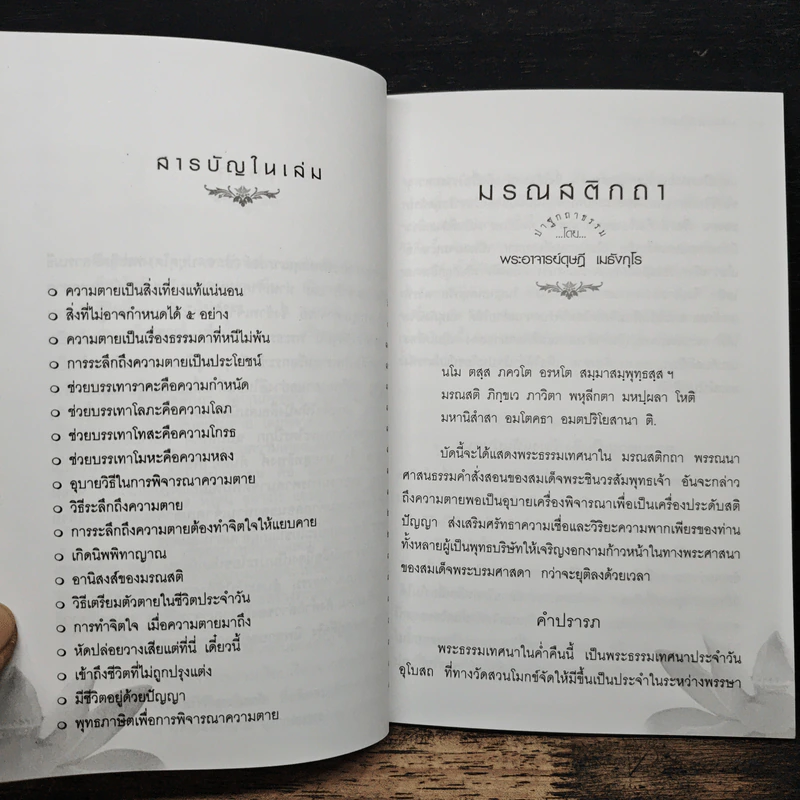 สารบัญในเล่ม
ความตายเป็นสิ่งเที่ยงแท้แน่นอน
สิ่งที่ไม่อาจกำหนดได้ ๕ อย่าง
ความตายเป็นเรื่องธรรมดาที่หนีไม่พ้น
การระลึกถึงความตายเป็นประโยชน์
ช่วยบรรเทาราคะคือความกำหนัด
ช่วยบรรเทาโลภะคือความโลภ
ช่วยบรรเทาโทสะคือความโกรธ
ช่วยบรรเทาโมหะคือความหลง
อุบายวิธีในการพิจารณาความตาย
วิธีระลึกถึงความตาย
การระลึกถึงความตายต้องทำจิตใจให้แยบคาย
เกิดนิพพิทาญาณ
อานิสงส์ของมรณสติ
วิธีเตรียมตัวตายในชีวิตประจำวัน
การทำจิตใจ เมื่อความตายมาถึง
หัดปล่อยวางเสียแต่ที่นี่ เดี๋ยวนี้
เข้าถึงชีวิตที่ไม่ถูกปรุงแต่ง
มีชีวิตอยู่ด้วยปัญญา
พุทธภาษิตเพื่อการพิจารณาความตาย
มรณสติกถา
ปาฐกถาธรรม
...โดย...
พระอาจารย์ดุษฎี เมธังกุโร
นโม ตสฺส ภควโต อรหโต สมฺมาสมฺพุทฺธสฺส ฯ
มรณสติ ภิกฺขเว ภาวิตา พหุลีกตา มหปฺผลา โหติ
มหานิสํสา อมโตคธา อมตปริโยสานา ติ.
บัดนี้จะได้แสดงพระธรรมเทศนาใน มรณสติกถา พรรณนา
ศาสนธรรมคำสั่งสอนของสมเด็จพระชินวรสัมพุทธเจ้า อันจะกล่าว
ถึงความตายพอเป็นอุบายเครื่องพิจารณาเพื่อเป็นเครื่องประดับสติ
ปัญญา ส่งเสริมศรัทธาความเชื่อและวิริยะความพากเพียรของท่าน
ทั้งหลายผู้เป็นพุทธบริษัทให้เจริญงอกงามก้าวหน้าในทางพระศาสนา
ของสมเด็จพระบรมศาสดา กว่าจะยุติลงด้วยเวลา
คำปรารภ
พระธรรมเทศนาในค่ำคืนนี้ เป็นพระธรรมเทศนาประจำวัน
อุโบสถ ที่ทางวัดสวนโมกข์จัดให้มีขึ้นเป็นประจำในระหว่างพรรษา